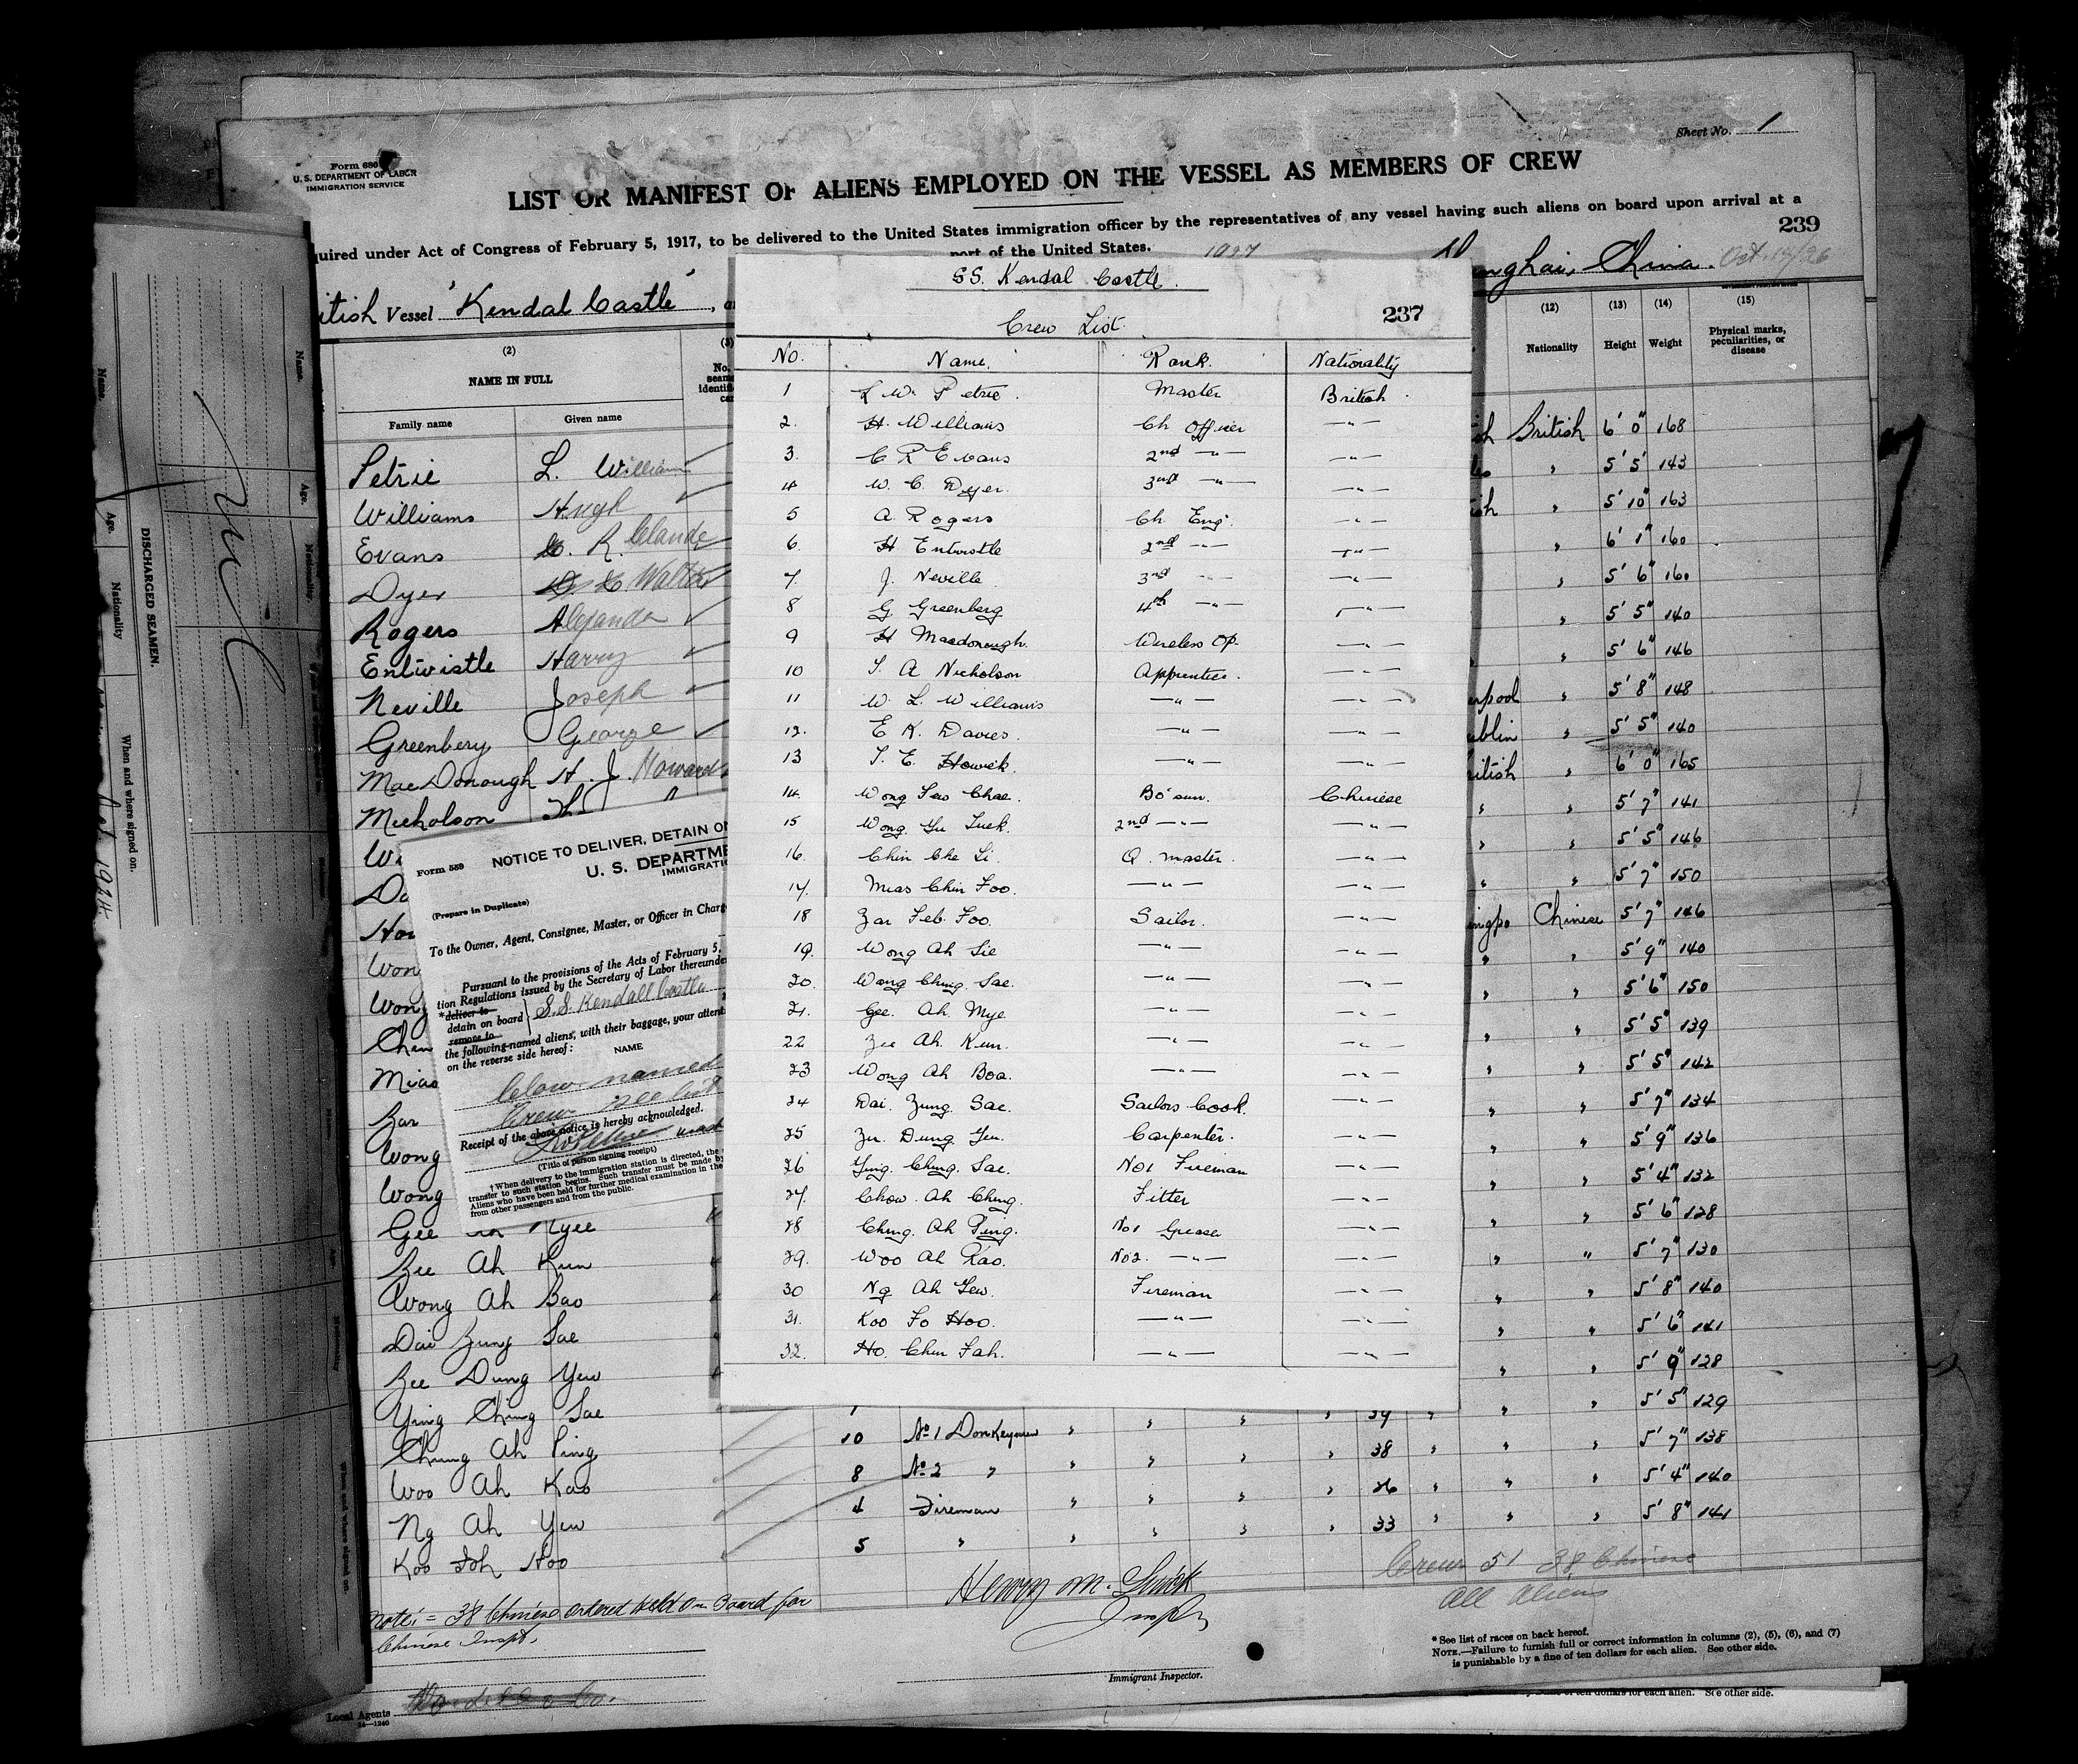 Sheet No. 1
Form 680
U. S. DEPARTMENT OF LABOR
IMMIGRATION SERVICE
LIST OR MANIFEST OF ALIENS EMPLOYED ON THE VESSEL AS MEMBERS OF CREW
quired under Act of Congress of February 5, 1917, to be delivered to the United States immigration officer by the representatives of any vessel having such aliens on board upon arrival at a
port of the United States.
239
1927
itish Vessel "Kendal Castle"
anghai, China. Oct. 14/26
(2)
NAME IN FULL
Family name Given name
(12) (13) (14) (15)
Nationality Height Weight Physical marks, peculiarities, or disease
Petrie L. William
Williams Hugh
Evans C. R. Claude
Dyer Walter
Rogers Alexander
Entwistle Harry
Neville Joseph
Greenberg George
MacDonough H. J. Howard
Nicholson Th
Wi
Da
How
Won
Wong
Chen
Miao
Zar
Wong
Wong
Gee Ah Nyee
Zee Ah Kun
Wong Ah Bao
Dai Zung Sae
Zee Dung Yew
Ying Ching Sae
Chung Ah Ping
Woo Ah Kao
Ng Ah Yew
Koo Foh Hoo
SS. Kendal Castle.
Crew List.
237
No. Name. Rank. Nationality
1 L W. Petrie. Master British
2. H. Williams Ch Officer —"—
3. C R Evans 2nd —"— —"—
4 W. C. Dyer. 3rd —"— —"—
5 A. Rogers Ch. Eng. —"—
6. H Entwistle 2nd —"— —"—
7. J. Neville 3rd —"— —"—
8 G. Greenberg 4th —"— —"—
9 H Macdonough. Wireless Op. —"—
10 T. A Nicholson Apprentice. —"—
11 W. L. Williams —"— —"—
12. E K. Davies. —"— —"—
13 T. E. Howek. —"— —"—
14. Wong Sew Chae. Bo'sun. Chinese
15 Wong. Yu Luck. 2nd —"— —"—
16. Chin Che Li. Q. master. —"—
17. Mias Chin Foo. —"— —"—
18 Zar Feb. Foo. Sailor. —"—
19. Wong Ah Sie —"— —"—
20. Wong Ching. Sae. —"— —"—
21. Gee. Ah. Mye —"— —"—
22 Zee Ah. Kun. —"— —"—
23 Wong Ah Boa. —"— —"—
24 Dai. Zung. Sae. Sailors Cook. —"—
25 Zu. Dung Yeu. Carpenter. —"—
26 Ying. Ching. Sae. No1 Fireman —"—
27. Chow. Ah Ching. Fitter —"—
28 Ching. Ah Ping. No1 Greaser —"—
29. Woo Ah Kao. No2. —"— —"—
30 Ng Ah Yew. Fireman —"—
31. Koo Fo Hoo. —"— —"—
32. Ho. Chin Fah. —"— —"—
British 6' 0" 168
5' 5" 143
5' 10" 163
6' 1" 160
5' 6" 160
5' 5" 140
5' 6" 146
erpool 5' 8" 148
ublin 5' 5" 140
ritish 6' 0" 165
5' 7" 141
5' 5" 146
5' 7" 150
ingpo Chinese 5' 7" 146
5' 9" 140
5' 6" 150
5' 5" 139
5' 5" 142
5' 7" 134
5' 9" 136
5' 4" 132
5' 6" 128
5' 7" 130
5' 8" 140
5' 6" 141
5' 9" 128
39 5' 5" 129
10 No 1 Donkeyman 38 5' 7" 138
8 No 2 " 26 5' 4" 140
4 Fireman 33 5' 8" 141
5
Form 559
NOTICE TO DELIVER, DETAIN ON
U. S. DEPARTME
IMMIGRATIO
(Prepare in Duplicate)
To the Owner, Agent, Consignee, Master, or Officer in Charg
Pursuant to the provisions of the Acts of February 5,
tion Regulations issued by the Secretary of Labor thereunde
*deliver to
detain on board
remove to
S.S. Kendall Castle
the following-named aliens, with their baggage, your attent
on the reverse side hereof:
NAME
below named
Crew see list
Receipt of the above notice is hereby acknowledged.
(Title of person signing receipt)
† When delivery to the immigration station is directed, the
transfer to such station begins. Such transfer must be made by
Aliens who have been held for further medical examination in the
from other passengers and from the public.
note: = 38 Chinese ordered held on Board for
Chinese Inspt.
Henry M.
Inspr
Immigrant Inspector.
Crew 51 38 Chinese
All Aliens
* See list of races on back hereof.
NOTE.—Failure to furnish full or correct information in columns (2), (5), (6), and (7)
is punishable by a fine of ten dollars for each alien. See other side.
of ten dollars for each alien. See other side.
Local Agents
14—1240
DISCHARGED SEAMEN.
Name. Age. Nationality When and where signed on.
Name. Age. Nationality.
1924